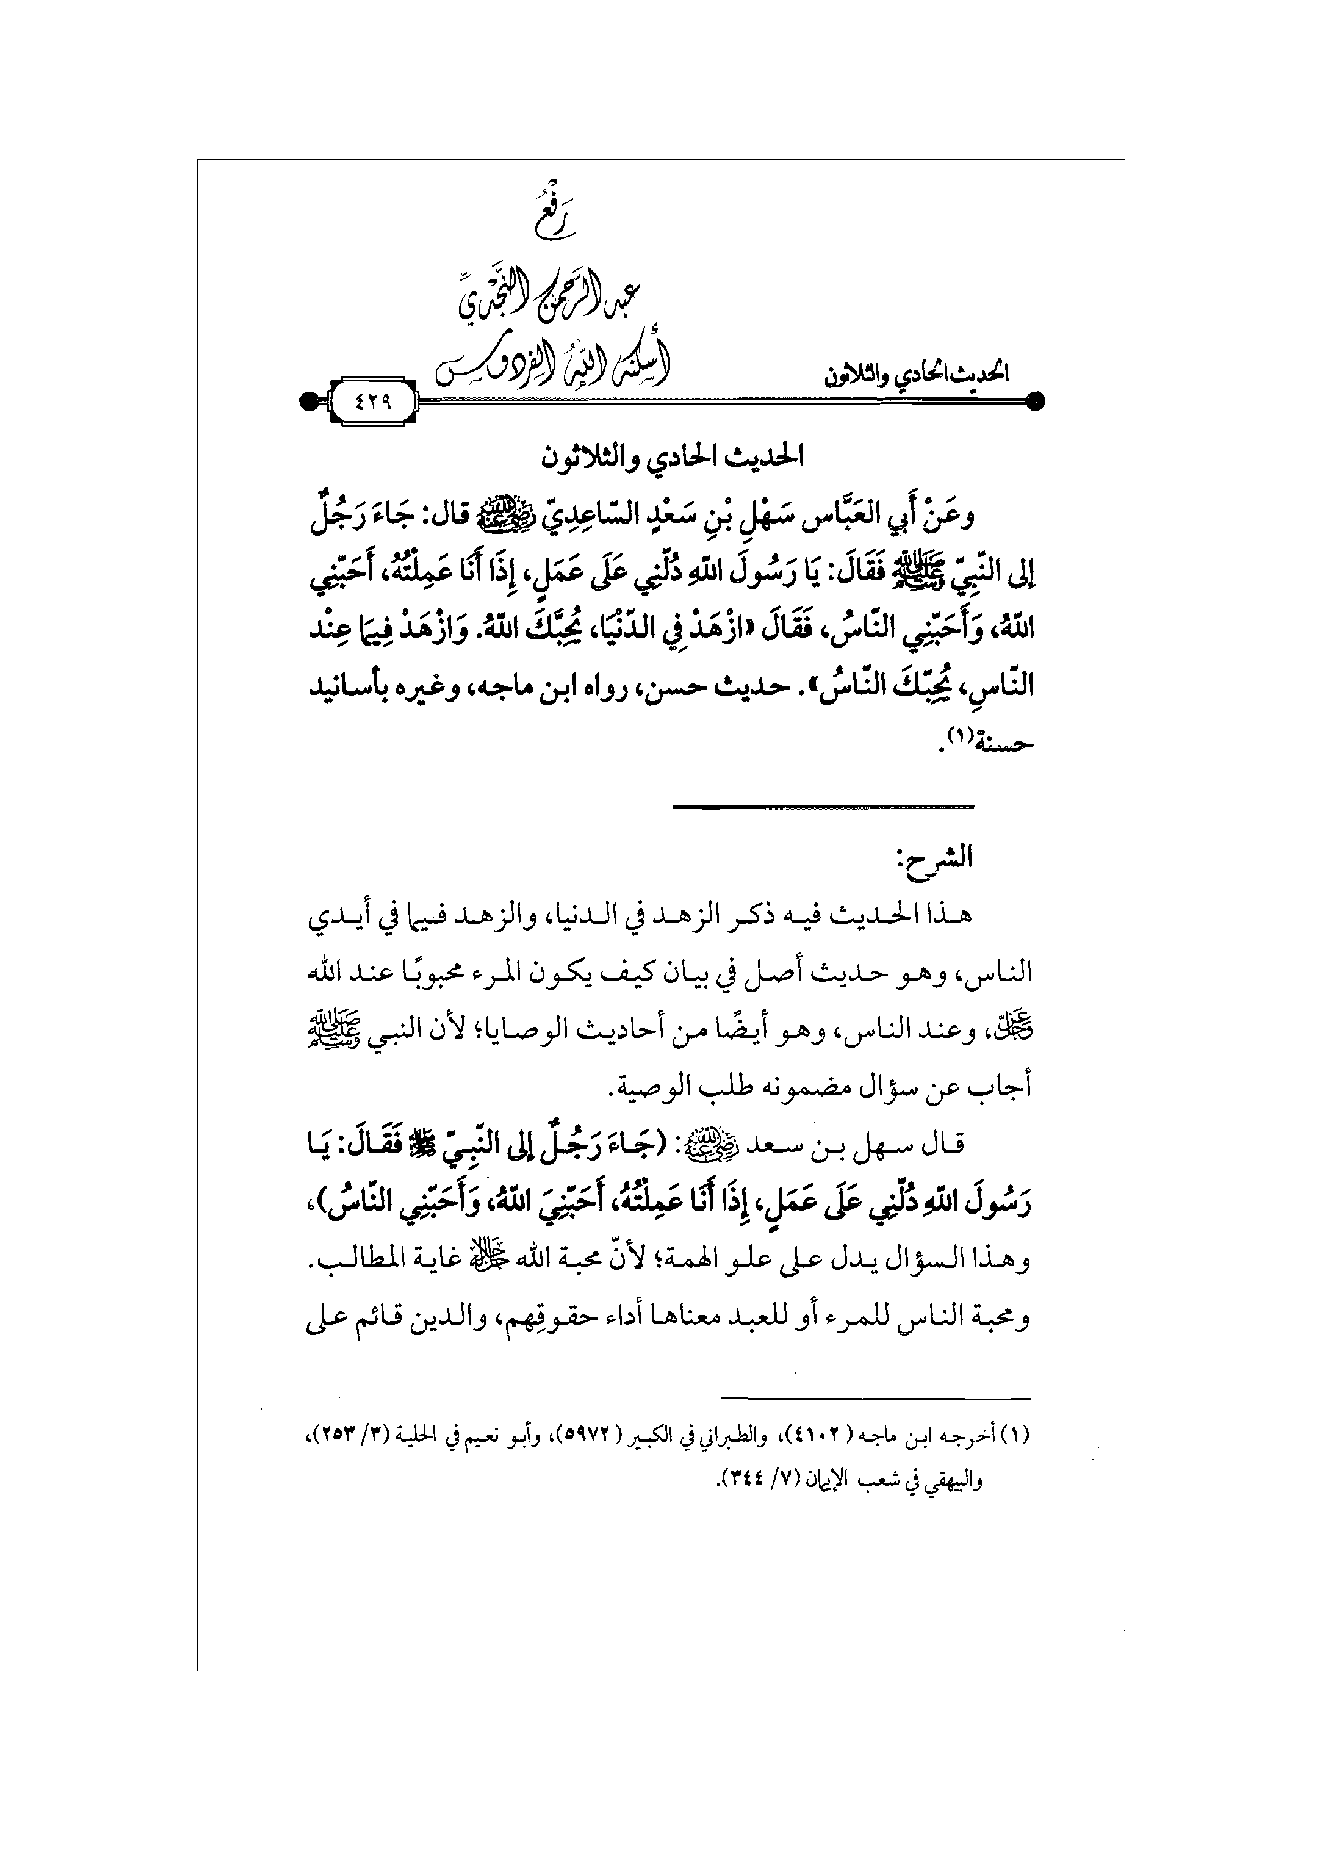 رَفْعُ
عبد الرحمن النجدي
أسكنه الله الفردوس
الحديث الحادي والثلاثون
٤٢٩
الحديث الحادي والثلاثون
وعَنْ أَبي العَبَّاس سَهْلِ بْنِ سَعْدٍ السّاعِدِيّ رضي الله عنه قال: جَاءَ رَجُلٌ
إلى النَّبِيّ ﷺ فَقَالَ: يَا رَسُولَ اللهِ دُلّنِي عَلَى عَمَلٍ، إِذَا أَنَا عَمِلْتُهُ، أَحَبّنِي
اللهُ، وَأَحَبّنِي النّاسُ، فَقَالَ «ازْهَدْ فِي الدّنْيَا، يُحِبَّكَ اللهُ. وَازْهَدْ فِيمَا عِنْد
النّاسِ، يُحِبّكَ النّاسُ». حديث حسن، رواه ابن ماجه، وغيره بأسانيد
حسنة(١).
الشرح:
هذا الحديث فيه ذكر الزهد في الدنيا، والزهد فيما في أيدي
الناس، وهو حديث أصل في بيان كيف يكون المرء محبوبًا عند الله
عز وجل، وعند الناس، وهو أيضًا من أحاديث الوصايا؛ لأن النبي ﷺ
أجاب عن سؤال مضمونه طلب الوصية.
قال سهل بن سعد رضي الله عنه: (جَاءَ رَجُلٌ إلى النَّبِيّ ﷺ فَقَالَ: يَا
رَسُولَ اللهِ دُلّنِي عَلَى عَمَلٍ، إِذَا أَنَا عَمِلْتُهُ، أَحَبّنِيَ اللهُ، وَأَحَبّنِي النّاسُ)،
وهذا السؤال يدل على علو الهمة؛ لأنّ محبة الله جل جلاله غاية المطالب.
ومحبة الناس للمرء أو للعبد معناها أداء حقوقِهم، والدين قائم على
(١) أخرجه ابن ماجه (٤١٠٢)، والطبراني في الكبير (٥٩٧٢)، وأبو نعيم في الحلية (٣/ ٢٥٣)،
والبيهقي في شعب الإيمان (٧/ ٣٤٤).